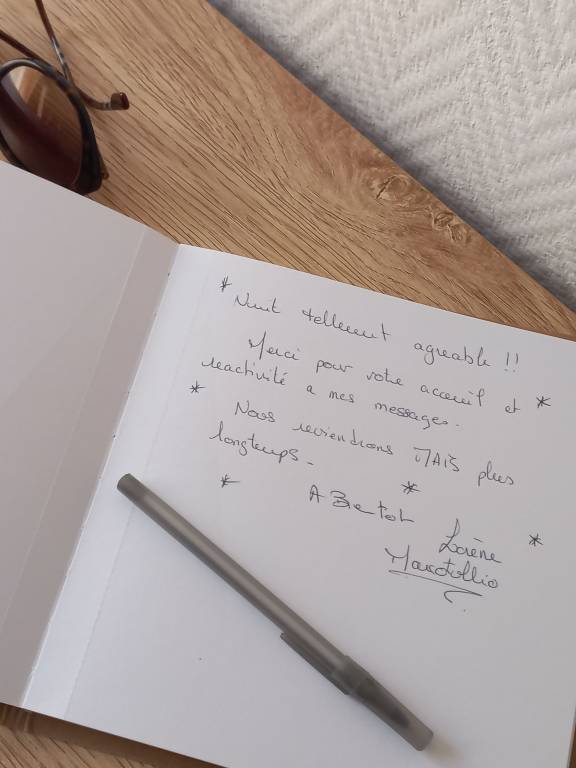 * Nuit tellement agréable !!
Merci pour votre accueil et *
reactivité a mes messages.
* Nous reviendrons MAIS plus
longtemps.
* A Bientot *
Lorène *